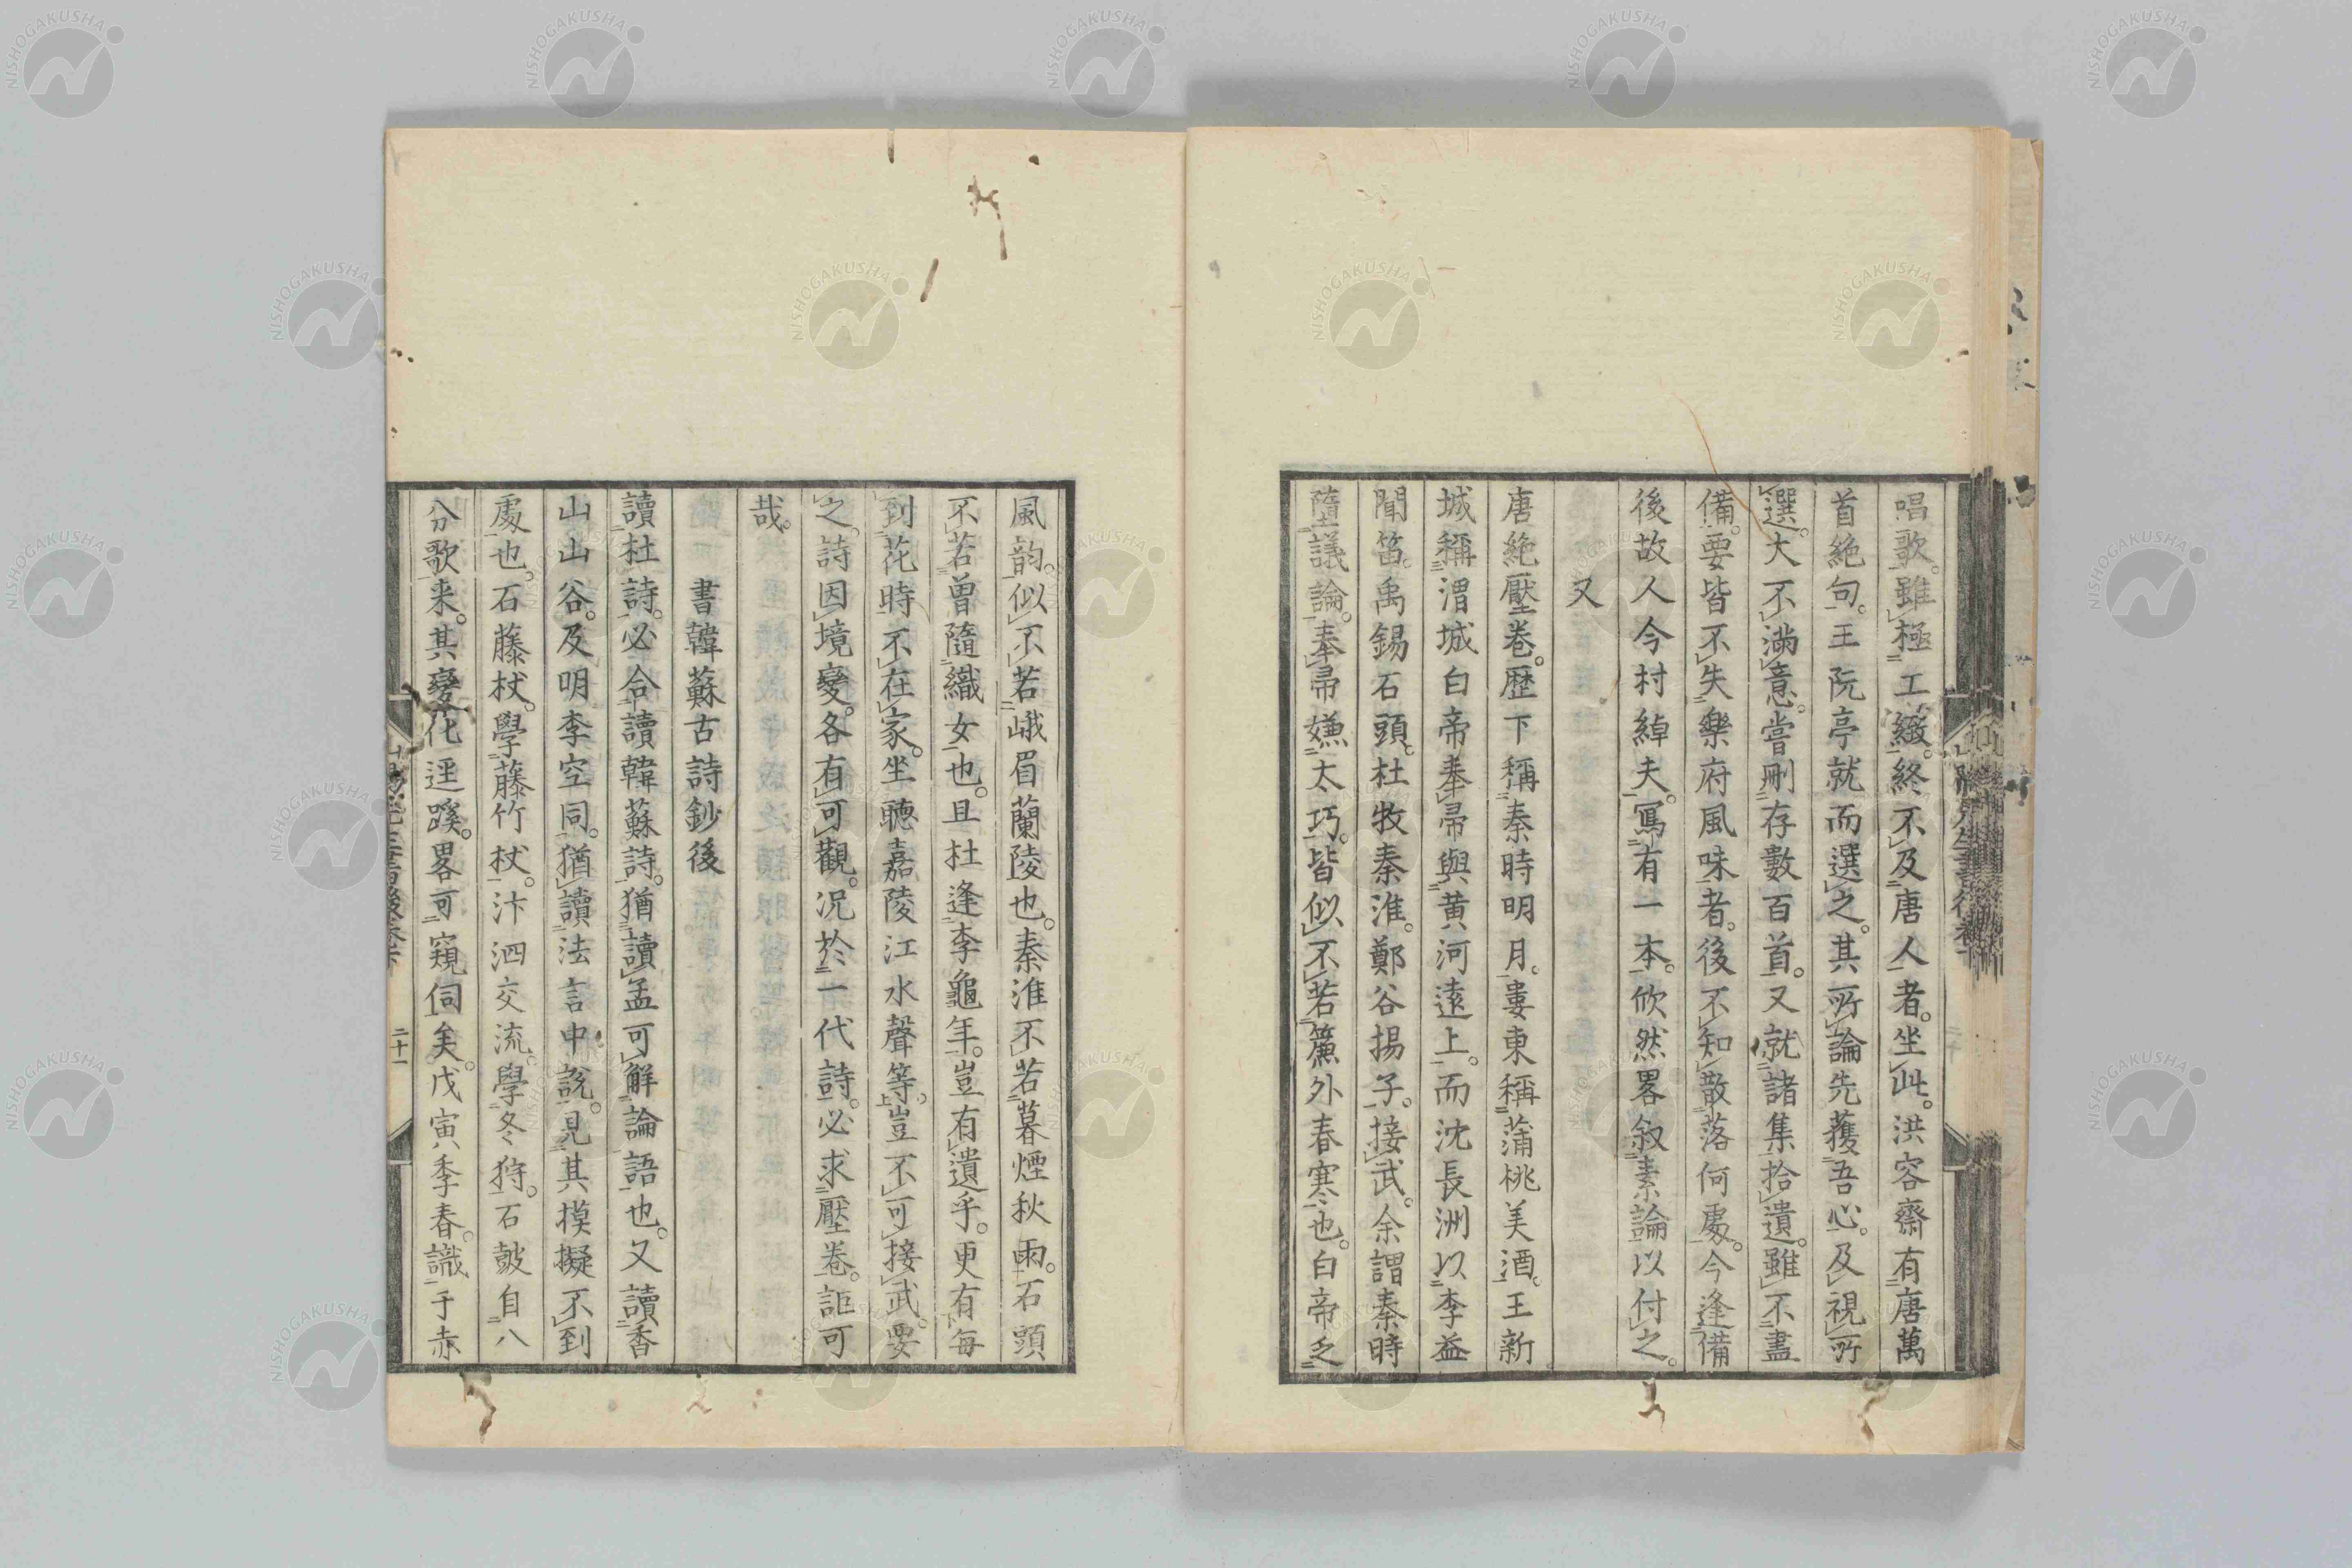 唱歌。雖極工緻。終不及唐人者。坐此。洪容齋有唐萬
首絶句。王阮亭就而選之。其所論先獲吾心。及視所
選。大不滿意。嘗刪存數百首。又就諸集拾遺。雖不盡
備。要皆不失樂府風味者。後不知散落何處。今逢備
後故人今村綽夫。寫有一本。欣然畧敘素論以付之。
又
唐絶壓卷。歷下稱秦時明月。婁東稱蒲桃美酒。王新
城稱渭城白帝奉帚與黄河遠上。而沈長洲以李益
聞笛。禹錫石頭。杜牧秦淮。鄭谷揚子。接武。余謂秦時
墮議論。奉帚嫌太巧。皆似不若簾外春寒也。白帝乏
風韵。似不若峨眉蘭陵也。秦淮不若暮煙秋雨。石頭
不若曾隨織女也。且杜逢李龜年。豈有遺乎。更有每
到花時不在家。坐聽嘉陵江水聲等。豈不可接武。要
之。詩因境變。各有可觀。況於一代詩。必求壓卷。詎可
哉。
書韓蘇古詩鈔後
讀杜詩。必合讀韓蘇詩。猶讀孟可解論語也。又讀香
山山谷。及明李空同。猶讀法言中説。見其模擬不到
處也。石藤杖。學藤竹杖。汴泗交流。學冬狩。石皷自八
分歌来。其變化逕蹊。畧可窺伺矣。戊寅季春。識于赤
二十一
NISHOGAKUSHA